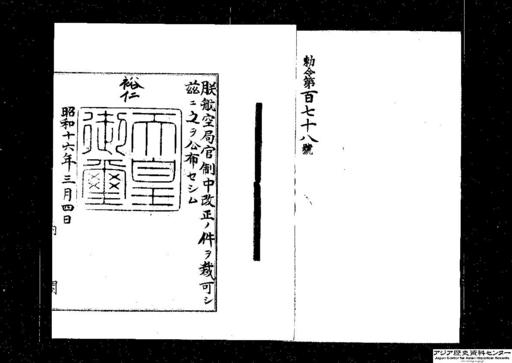 勅令第百七十八號
朕航空局官制中改正ノ件ヲ裁可シ
茲ニ之ヲ公布セシム
裕仁
天皇御璽
昭和十六年三月四日
内閣
アジア歴史資料センター
Japan Center for Asian Historical Records